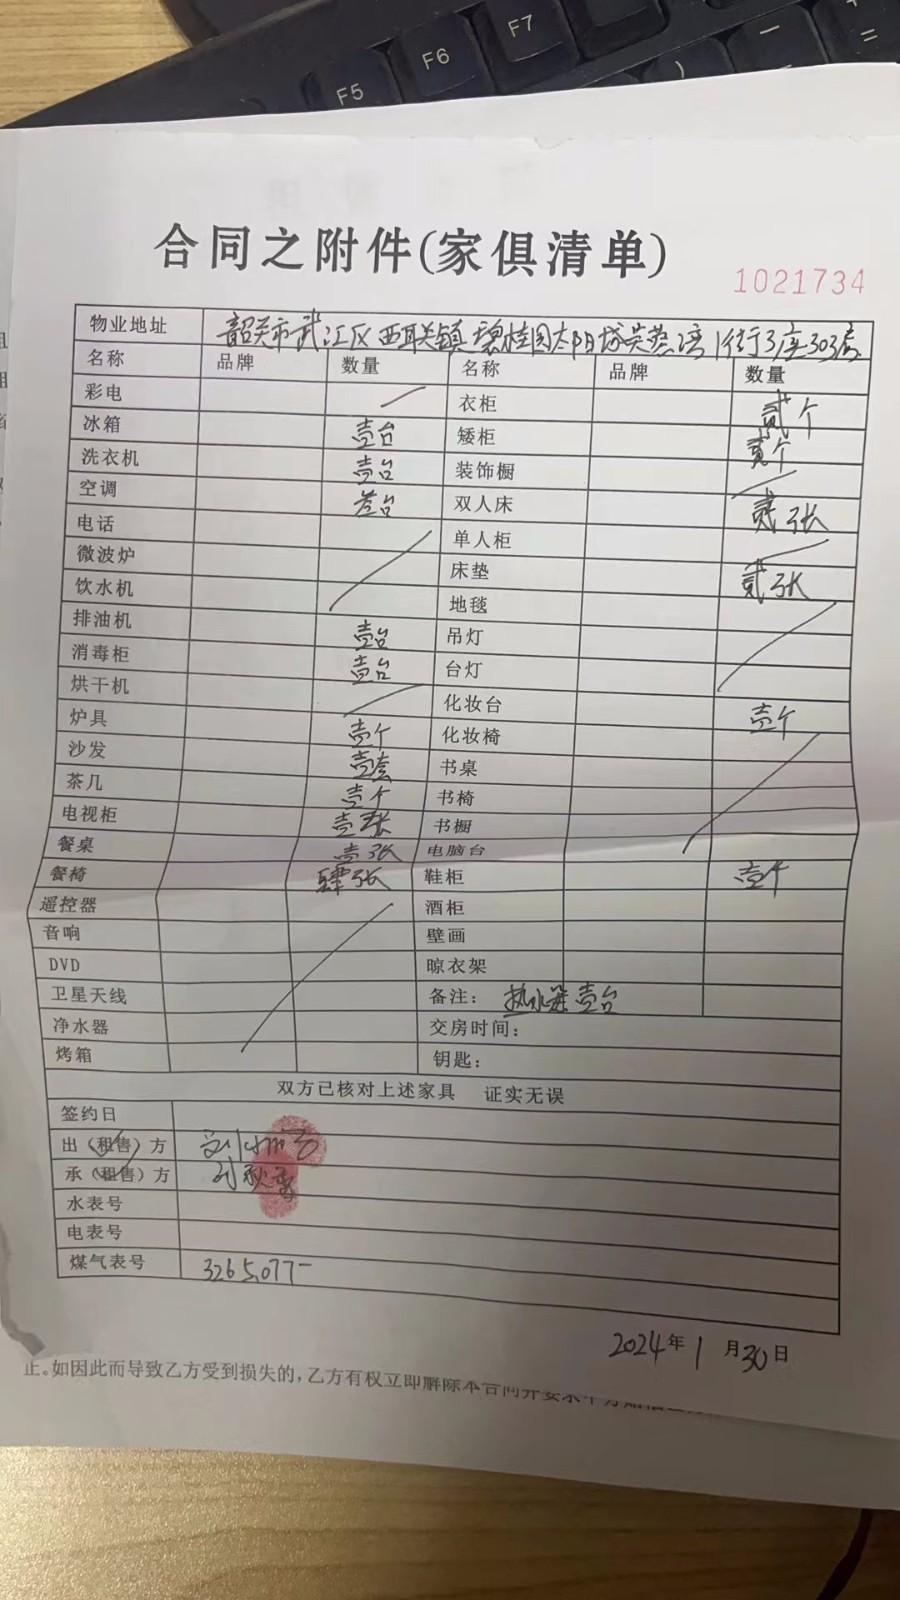 F5
F6
F7
)
—
+
=
合同之附件(家俱清单)
1021734
物业地址 韶关市武江区西联镇碧桂园太阳城芙蓉湾1街3座303房
名称 品牌 数量 名称 品牌 数量
彩电 衣柜 贰个
冰箱 壹台 矮柜 贰个
洗衣机 壹台 装饰橱
空调 叁台 双人床 贰张
电话 单人柜
微波炉 床垫 贰张
饮水机 地毯
排油机 壹台 吊灯
消毒柜 壹台 台灯
烘干机 化妆台 壹个
炉具 壹个 化妆椅
沙发 壹套 书桌
茶几 壹个 书椅
电视柜 壹张 书橱
餐桌 壹张 电脑台
餐椅 肆张 鞋柜 壹个
遥控器 酒柜
音响 壁画
DVD 晾衣架
卫星天线 备注: 热水器壹台
净水器 交房时间:
烤箱 钥匙:
双方已核对上述家具 证实无误
签约日
出(租售)方
承(租售)方 刘秋
水表号
电表号
煤气表号 3265,077
2024年1月30日
正。如因此而导致乙方受到损失的,乙方有权立即解除本合同并要求甲方赔偿